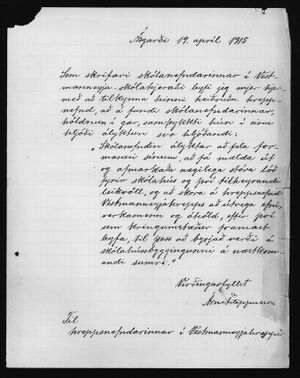 Ásgarði 19. apríl 1915
Sem skrifari skólanefndarinnar í Vest-
mannaeyja skólahjeraði leyfi jeg mjer hjer
með að tilkynna hinni heiðruðu hrepps-
nefnd, að á fundi skólanefndarinnar,
höldnum í gær, samþykkti hún í einu
hljóði ályktun svo hljóðandi:
"Skólanefndin ályktar að fela for-
manni sínum, að fá mælda út
og afmarkaða nægilega stóra lóð
fyrir skólahús og því tilheyrandi
leikvöll, og að skora á hreppsnefnd
Vestmannaeyjahrepps að útvega efni,
verkamenn og áhöld, eftir því
sem kringumstæður framast
leyfa, til þess að byrjað verði á
skólahússbyggingunni á næstkom-
andi sumri."
Virðingarfyllst
Árni Filippusson
Til
hreppsnefndarinnar í Vestmannaeyjahreppi